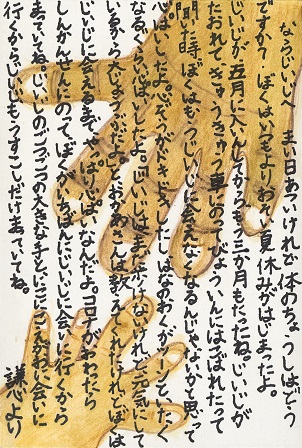 ならじいじへ まい日あついけれど体のちょうしはどう
ですか？ ぼくはいつもよりおそい夏休みがはじまったよ。
じいじが五月に入いんしてから、もう三か月もたったね。じいじが
たおれて、きゅうきゅう車にのってびょういんにはこばれたって
聞いた時、ぼくはもうじいじに会えなくなるんじゃないかと思って
心ぱいしたよ。心ぞうがドキドキしたし、はなのおくがツーンといたく
なるくらいしんぱいしたよ。「じいじはまだ歩けないけれど元気にして
いるからだいじょうぶだよ」とお母さんは教えてくれたけれど、ぼくは
じいじに会えるまで、やっぱり心ぱいなんだよ。コロナがおわったら
しんかんせんにのって、ぼくがいちばんにじいじに会いに行くから
まっていてね。じいじのゴツゴツの大きな手と、ニコニコえがおに会いに
行くから、じいじももうすこしだけまっていてね。
謙心より